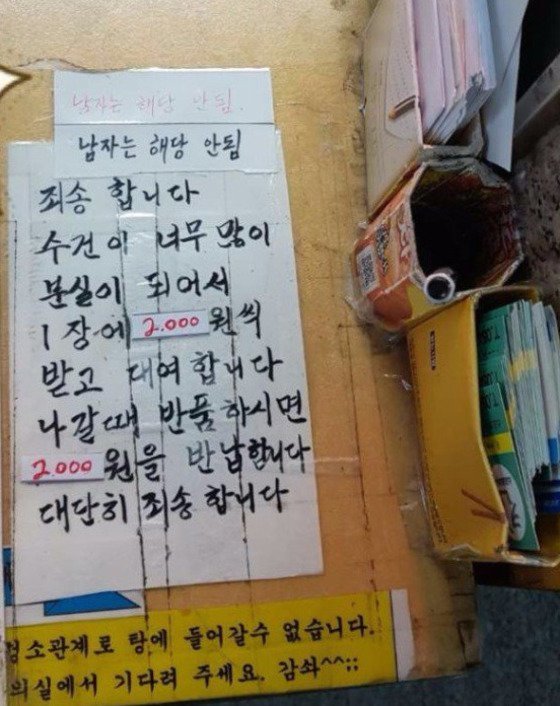 남자는 해당 안됨.
남자는 해당 안됨
죄송 합니다
수건이 너무 많이
분실이 되어서
1 장에 2.000 원씩
받고 대여합니다
나갈때 반품하시면
2.000 원을 반납합니다
대단히 죄송합니다
소관계로 탕에 들어갈수 없습니다.
의실에서 기다려 주세요. 감솨^^;;